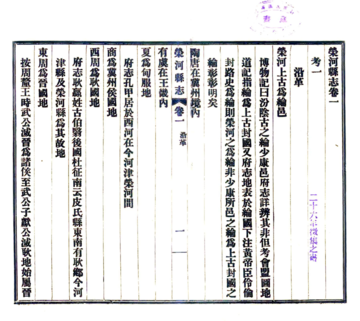 榮河縣志卷一
考一
沿革
榮河上古爲綸邑
博物記曰汾陰古之綸少康邑府志詳辨其非但考會盟圖地
道記指綸爲上古封國又府志地表於綸國下注黃帝臣伶倫
封路史爲綸則榮河之爲綸非少康所邑之綸爲上古封國之
綸彰彰明矣
陶唐在冀州域內
榮河縣志 卷一 沿革 一
有虞在王畿內
夏爲甸服地
府志孔甲居於西河在今河津榮河間
商爲冀州侯國地
西周爲耿國地
府志耿嬴姓古伯翳後國杜征南云皮氏縣東南有耿鄉今河
津縣及榮河縣爲其故地
東周爲晉國地
按周釐王時武公滅晉爲諸侯至武公子獻公滅耿地始屬晉